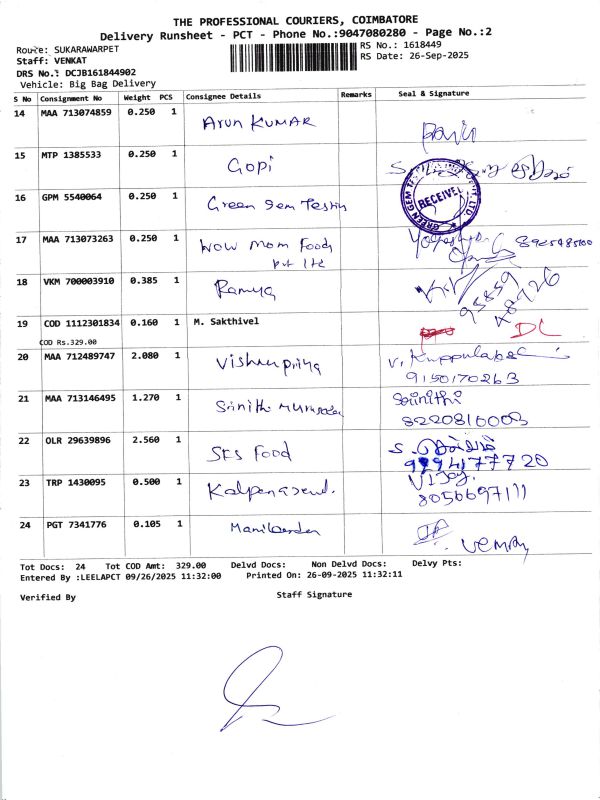 THE PROFESSIONAL COURIERS, COIMBATORE
Delivery Runsheet - PCT - Phone No.:9047080280 - Page No.:2
Route: SUKARAWARPET
RS No.: 1618449
Staff: VENKAT
RS Date: 26-Sep-2025
DRS No.: DCJB161844902
Vehicle: Big Bag Delivery
S No Consignment No Weight PCS Consignee Details Remarks Seal & Signature
14 MAA 713074859 0.250 1 Arun KUMAR
15 MTP 1385533 0.250 1 Gopi
16 GPM 5540064 0.250 1 Green Gem Testing
GREEN GEM
RECEIVED
17 MAA 713073263 0.250 1 WOW Mom Foods
Pvt Ltd
18 VKM 700003910 0.385 1 Ramya
19 COD 1112301834 0.160 1 M. Sakthivel DL
COD Rs.329.00
20 MAA 712489747 2.080 1 Vishnupriya
9150170263
21 MAA 713146495 1.270 1 Srinithi
8220816003
22 OLR 29639896 2.560 1 SFS Food
23 TRP 1430095 0.500 1 VIJAY.
8056697111
24 PGT 7341776 0.105 1 Manikandan
Tot Docs: 24 Tot COD Amt: 329.00 Delvd Docs: Non Delvd Docs: Delvy Pts:
Entered By :LEELAPCT 09/26/2025 11:32:00 Printed On: 26-09-2025 11:32:11
Verified By Staff Signature